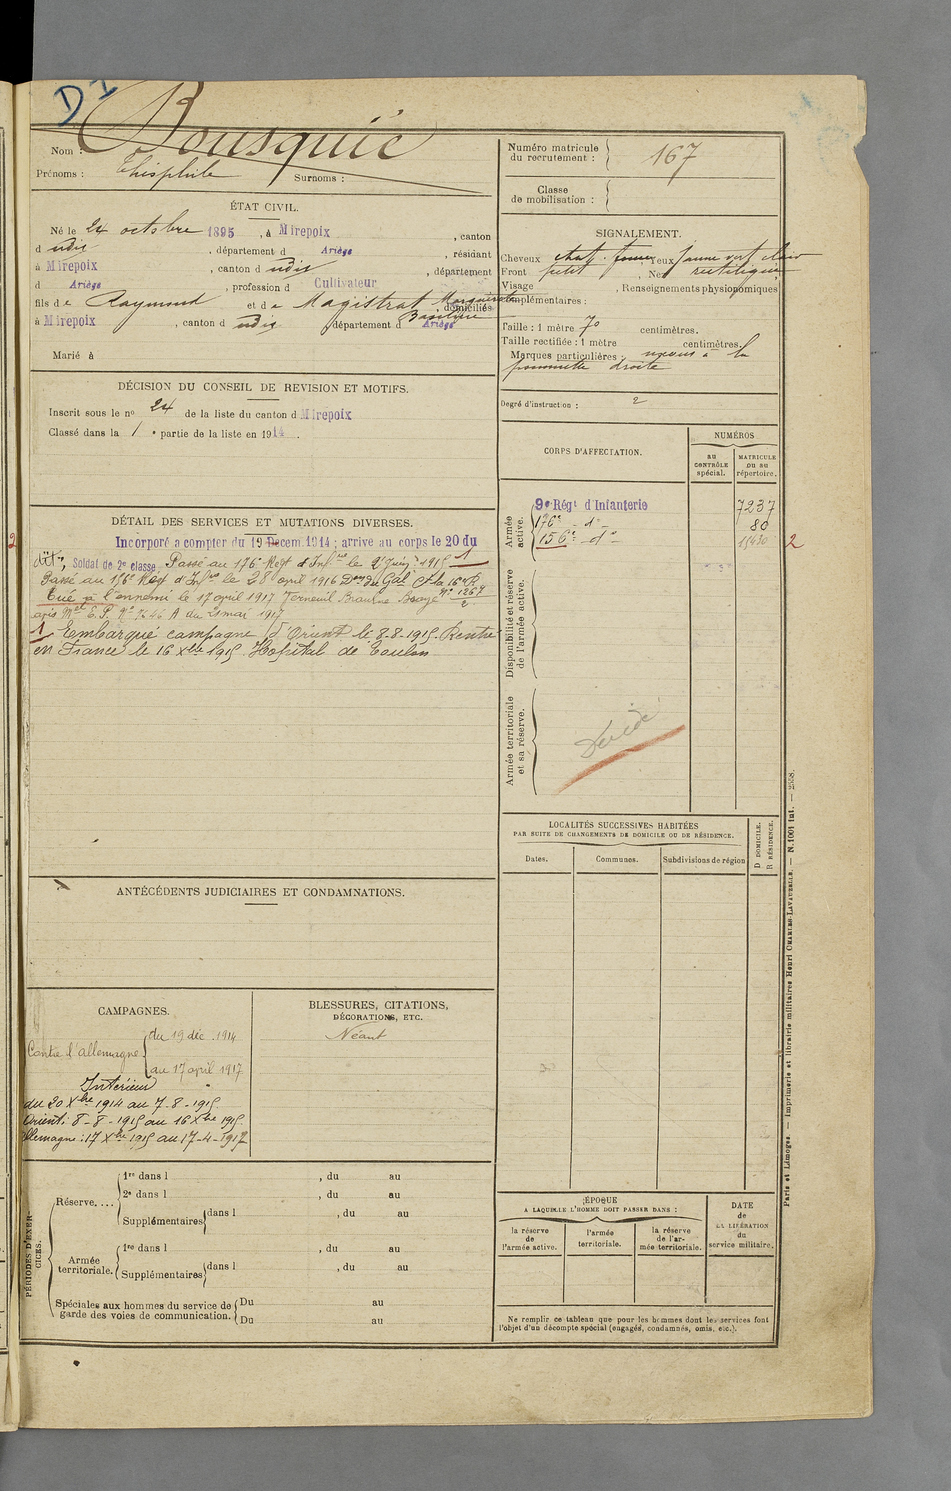 D I
Nom : Bousquié
Prénoms : Théophile Surnoms :
ÉTAT CIVIL.
Né le 24 octobre 1895, à Mirepoix, canton
d udis, département d Ariège, résidant
à Mirepoix, canton d udis, département
d Ariège, profession d Cultivateur
fils de Raymond et de Magistrat Marguerite Basilice, domiciliés
à Mirepoix, canton d udis, département d Ariège
Marié à
DÉCISION DU CONSEIL DE REVISION ET MOTIFS.
Inscrit sous le no 24 de la liste du canton d Mirepoix
Classé dans la 1 e partie de la liste en 1914.
DÉTAIL DES SERVICES ET MUTATIONS DIVERSES.
Incorporé a compter du 19 Decem. 1914 ; arrivé au corps le 20 du
dit, Soldat de 2e classe. Passé au 176e Regt d'Infrie le 2 Juin 1915 1
Passé au 156e Regt d'Infrie le 28 avril 1916
Tué à l'ennemi le 17 avril 1917 Verneuil Braye No 1267
avis Mel E.P. No 7646 A du 21 mai 1917 2
1 Embarqué campagne d'Orient le 8-8-1915. Rentré
en France le 16 Xbre 1915. Hopital de Toulon
ANTÉCÉDENTS JUDICIAIRES ET CONDAMNATIONS.
CAMPAGNES.
Contre l'allemagne du 19 déc. 1914
au 17 avril 1917
Intérieur
du 20 Xbre 1914 au 7-8-1915
Orient : 8-8-1915 au 16 Xbre 1915
Allemagne : 17 Xbre 1915 au 17-4-1917
BLESSURES, CITATIONS,
DÉCORATIONS, ETC.
Néant
PÉRIODES D'EXERCICES.
Réserve....
1re dans l , du au
2e dans l , du au
Supplémentaires dans l , du au
Armée territoriale.
1re dans l , du au
Supplémentaires dans l , du au
Spéciales aux hommes du service de garde des voies de communication.
Du au
Du au
Numéro matricule
du recrutement : 167
Classe
de mobilisation :
SIGNALEMENT.
Cheveux chat. foncé Yeux jaune vert clair
Front petit, Nez rectiligne
Visage , Renseignements physionomiques
complémentaires :
Taille : 1 mètre 70 centimètres.
Taille rectifiée : 1 mètre centimètres.
Marques particulières : naevus à la
pommette droite
Degré d'instruction : 2
CORPS D'AFFECTATION.
NUMÉROS
AU CONTRÔLE spécial.
MATRICULE ou au répertoire.
Armée active.
9e Régt d'Infanterie 7237
176e - do - 80
156e - do - 15430 2
Disponibilité et réserve de l'armée active.
Armée territoriale et sa réserve.
Décédé
LOCALITÉS SUCCESSIVES HABITÉES
PAR SUITE DE CHANGEMENTS DE DOMICILE OU DE RÉSIDENCE.
Dates. Communes. Subdivisions de région
D DOMICILE.
R RÉSIDENCE.
ÉPOQUE
A LAQUELLE L'HOMME DOIT PASSER DANS :
la réserve de l'armée active.
l'armée territoriale.
la réserve de l'armée territoriale.
DATE de LA LIBÉRATION du service militaire.
Ne remplir ce tableau que pour les hommes dont les services font
l'objet d'un décompte spécial (engagés, condamnés, omis, etc.).
Paris et Limoges. — Imprimerie et librairie militaires Henri CHARLES-LAVAUZELLE. — N. 1001 int.